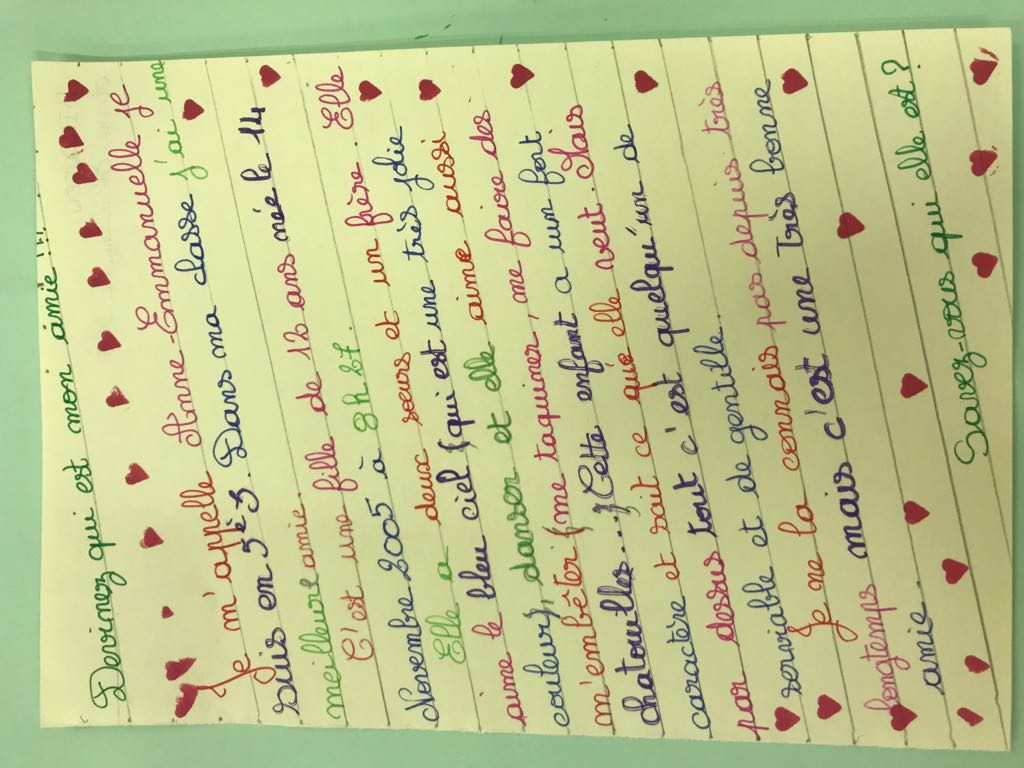 Devinez qui est mon amie !!!
Je m'appelle Anne-Emmanuelle je
suis en 5è3. Dans ma classe j'ai une
meilleure amie.
C'est une fille de 12 ans née le 14
Novembre 2005 à 9h27.
Elle a deux sœurs et un frère. Elle
aime le bleu ciel (qui est une très jolie
couleur), danser et elle aime aussi
m'embêter (me taquiner, me faire des
chatouilles...) Cette enfant a un fort
caractère et sait ce qu'elle veut. Mais
par dessus tout c'est quelqu'un de
serviable et de gentille.
Je ne la connais pas depuis très
longtemps mais c'est une très bonne
amie.
Savez-vous qui elle est ?